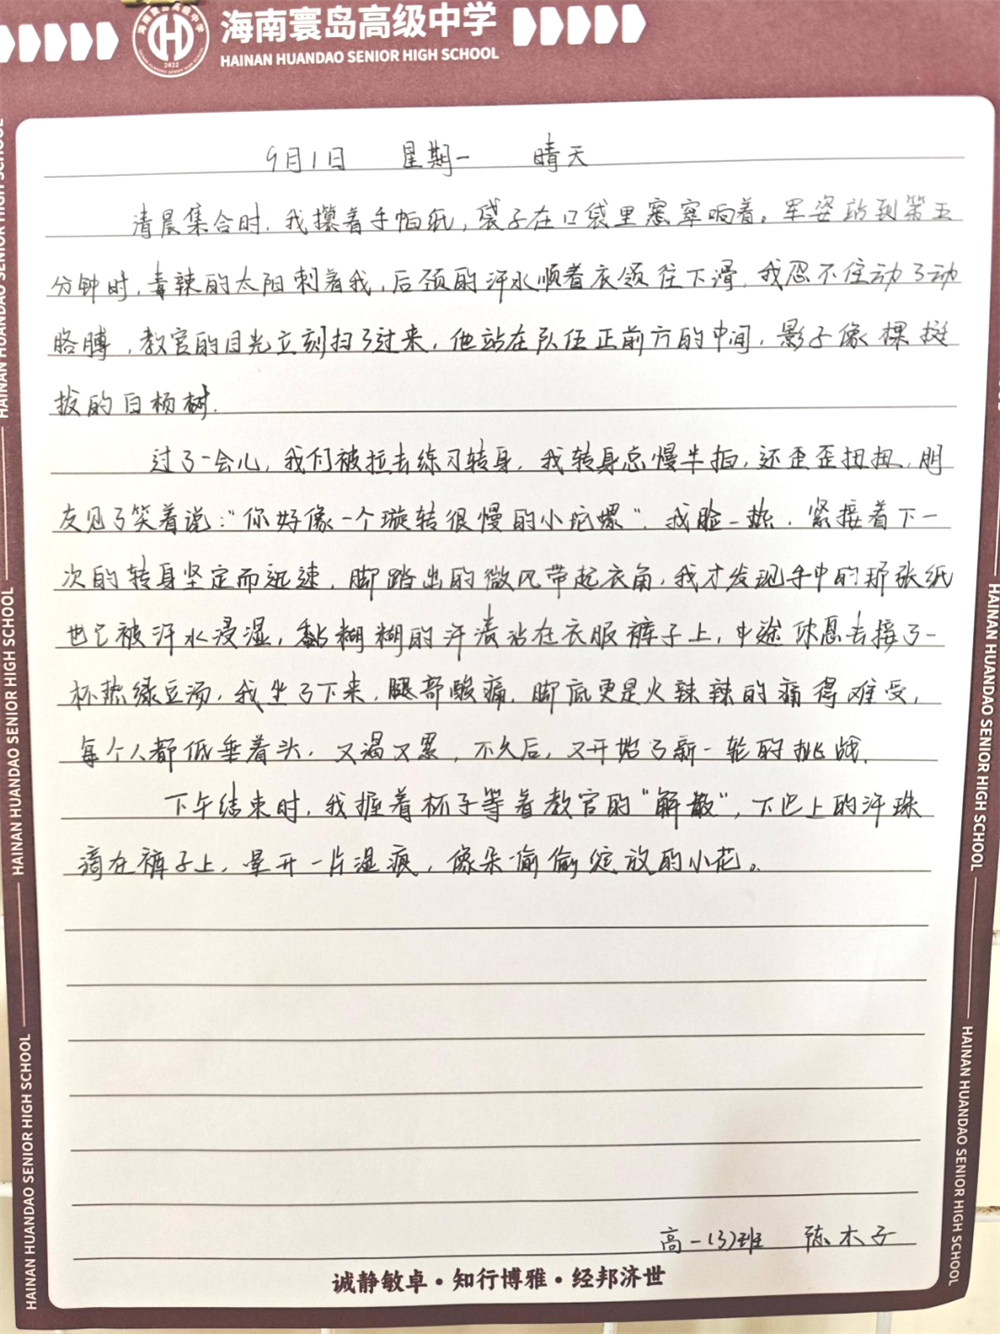 海南寰岛高级中学
HAINAN HUANDAO SENIOR HIGH SCHOOL
2022
9月1日 星期一 晴天
清晨集合时,我攥着手帕纸,袋子在口袋里窸窣响着。军姿站到第五
分钟时,毒辣的太阳刺着我,后颈的汗水顺着衣领往下滑,我忍不住动了动
胳膊,教官的目光立刻扫了过来,他站在队伍正前方的中间,影子像棵挺
拔的白杨树.
过了一会儿,我们被拉去练习转身,我转身总慢半拍,还歪歪扭扭,朋
友见了笑着说:"你好像一个旋转很慢的小陀螺".我脸一热,紧接着下一
次的转身坚定而迅速,脚踏出的微风带起衣角,我才发现手中的那张纸
也已被汗水浸湿,黏糊糊的汗渍沾在衣服裤子上,中途休息去接了一
杯热绿豆汤,我坐了下来,腿部酸痛,脚底更是火辣辣的痛得难受,
每个人都低垂着头,又渴又累,不久后,又开始了新一轮的挑战.
下午结束时,我握着杯子等着教官的"解散",下巴上的汗珠
滴在裤子上,晕开一片湿痕,像朵偷偷绽放的小花。
高一(3)班 陈木子
诚静敏卓·知行博雅·经邦济世
HAINAN HUANDAO SENIOR HIGH SCHOOL
HAINAN HUANDAO SENIOR HIGH SCHOOL
HAINAN HUANDAO SENIOR HIGH SCHOOL
HAINAN HUANDAO SENIOR HIGH SCHOOL
HAINAN HUANDAO SENIOR HIGH SCHOOL